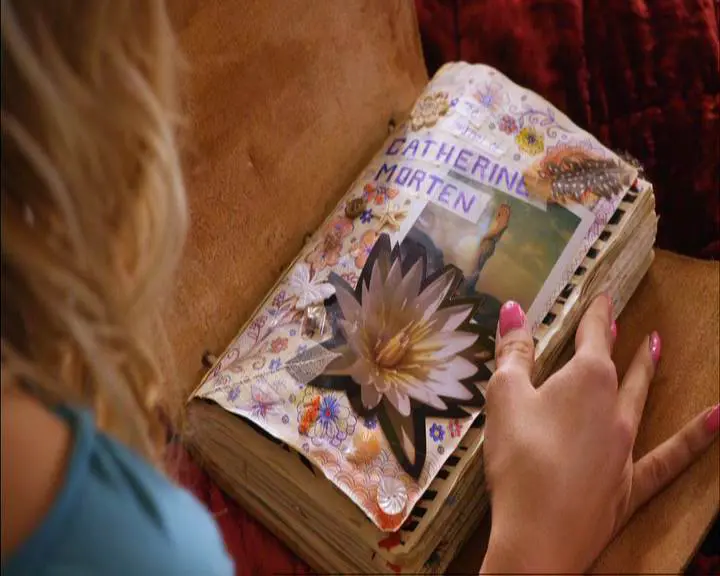 CATHERINE
MORTEN